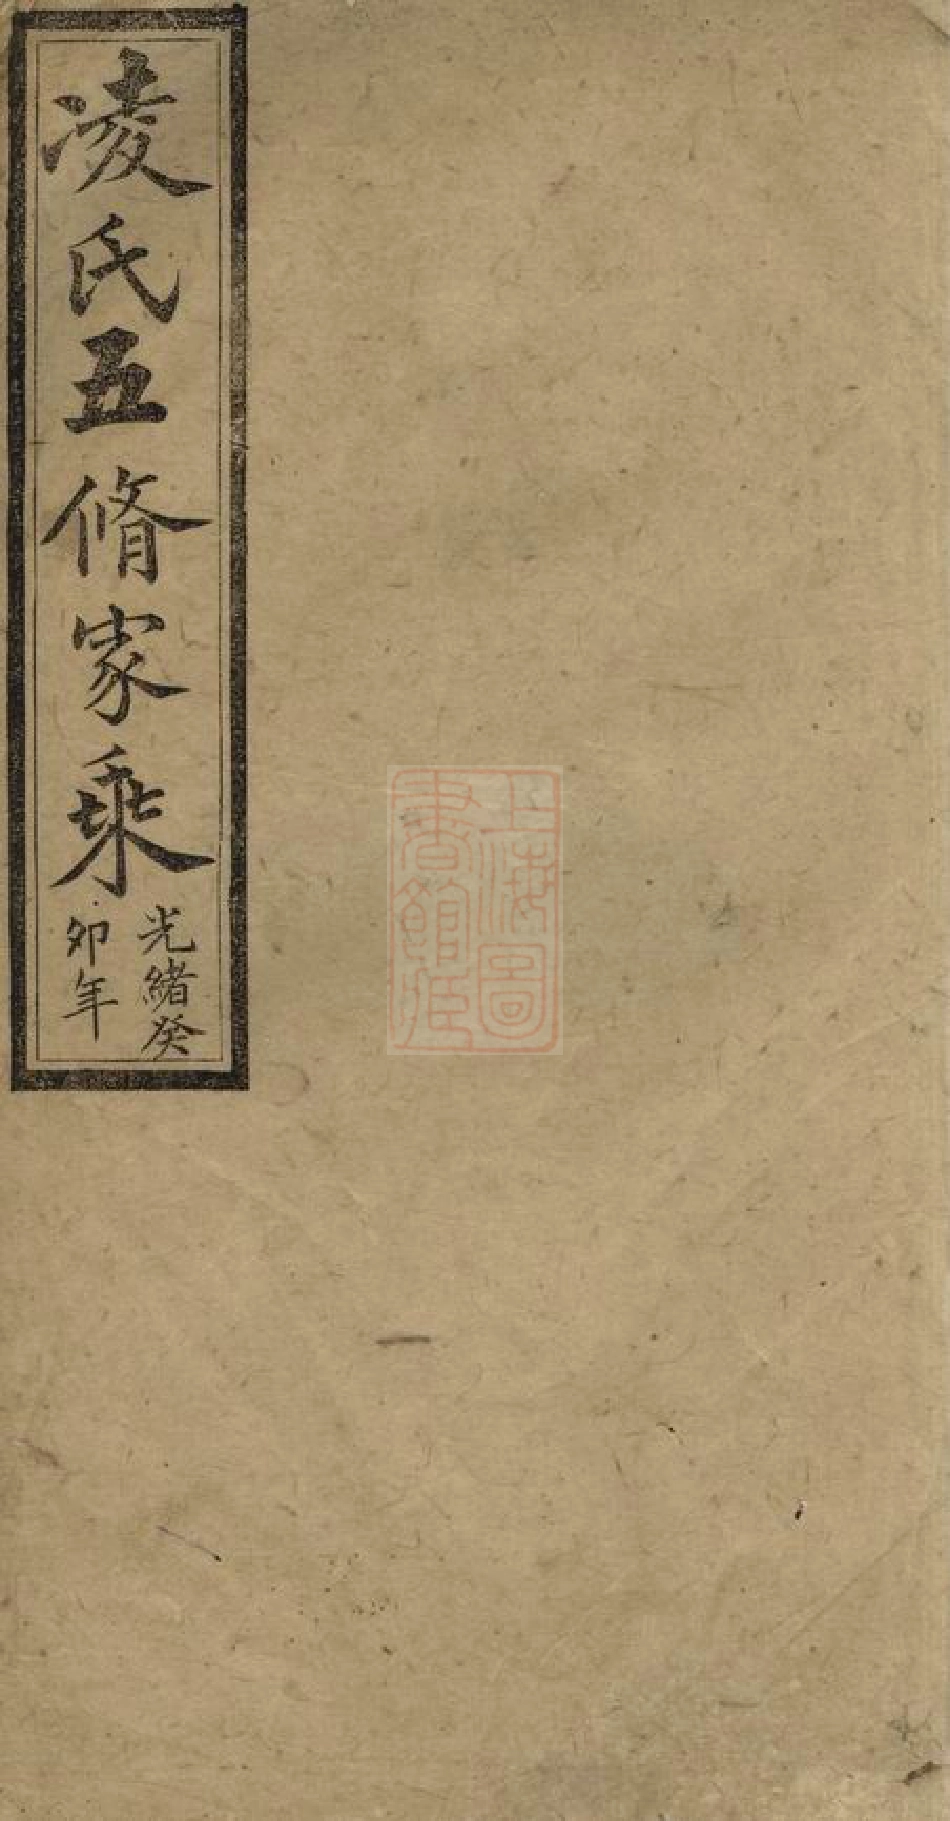 凌氏五脩家乘
光緒癸
卯年
上海圖
書館藏